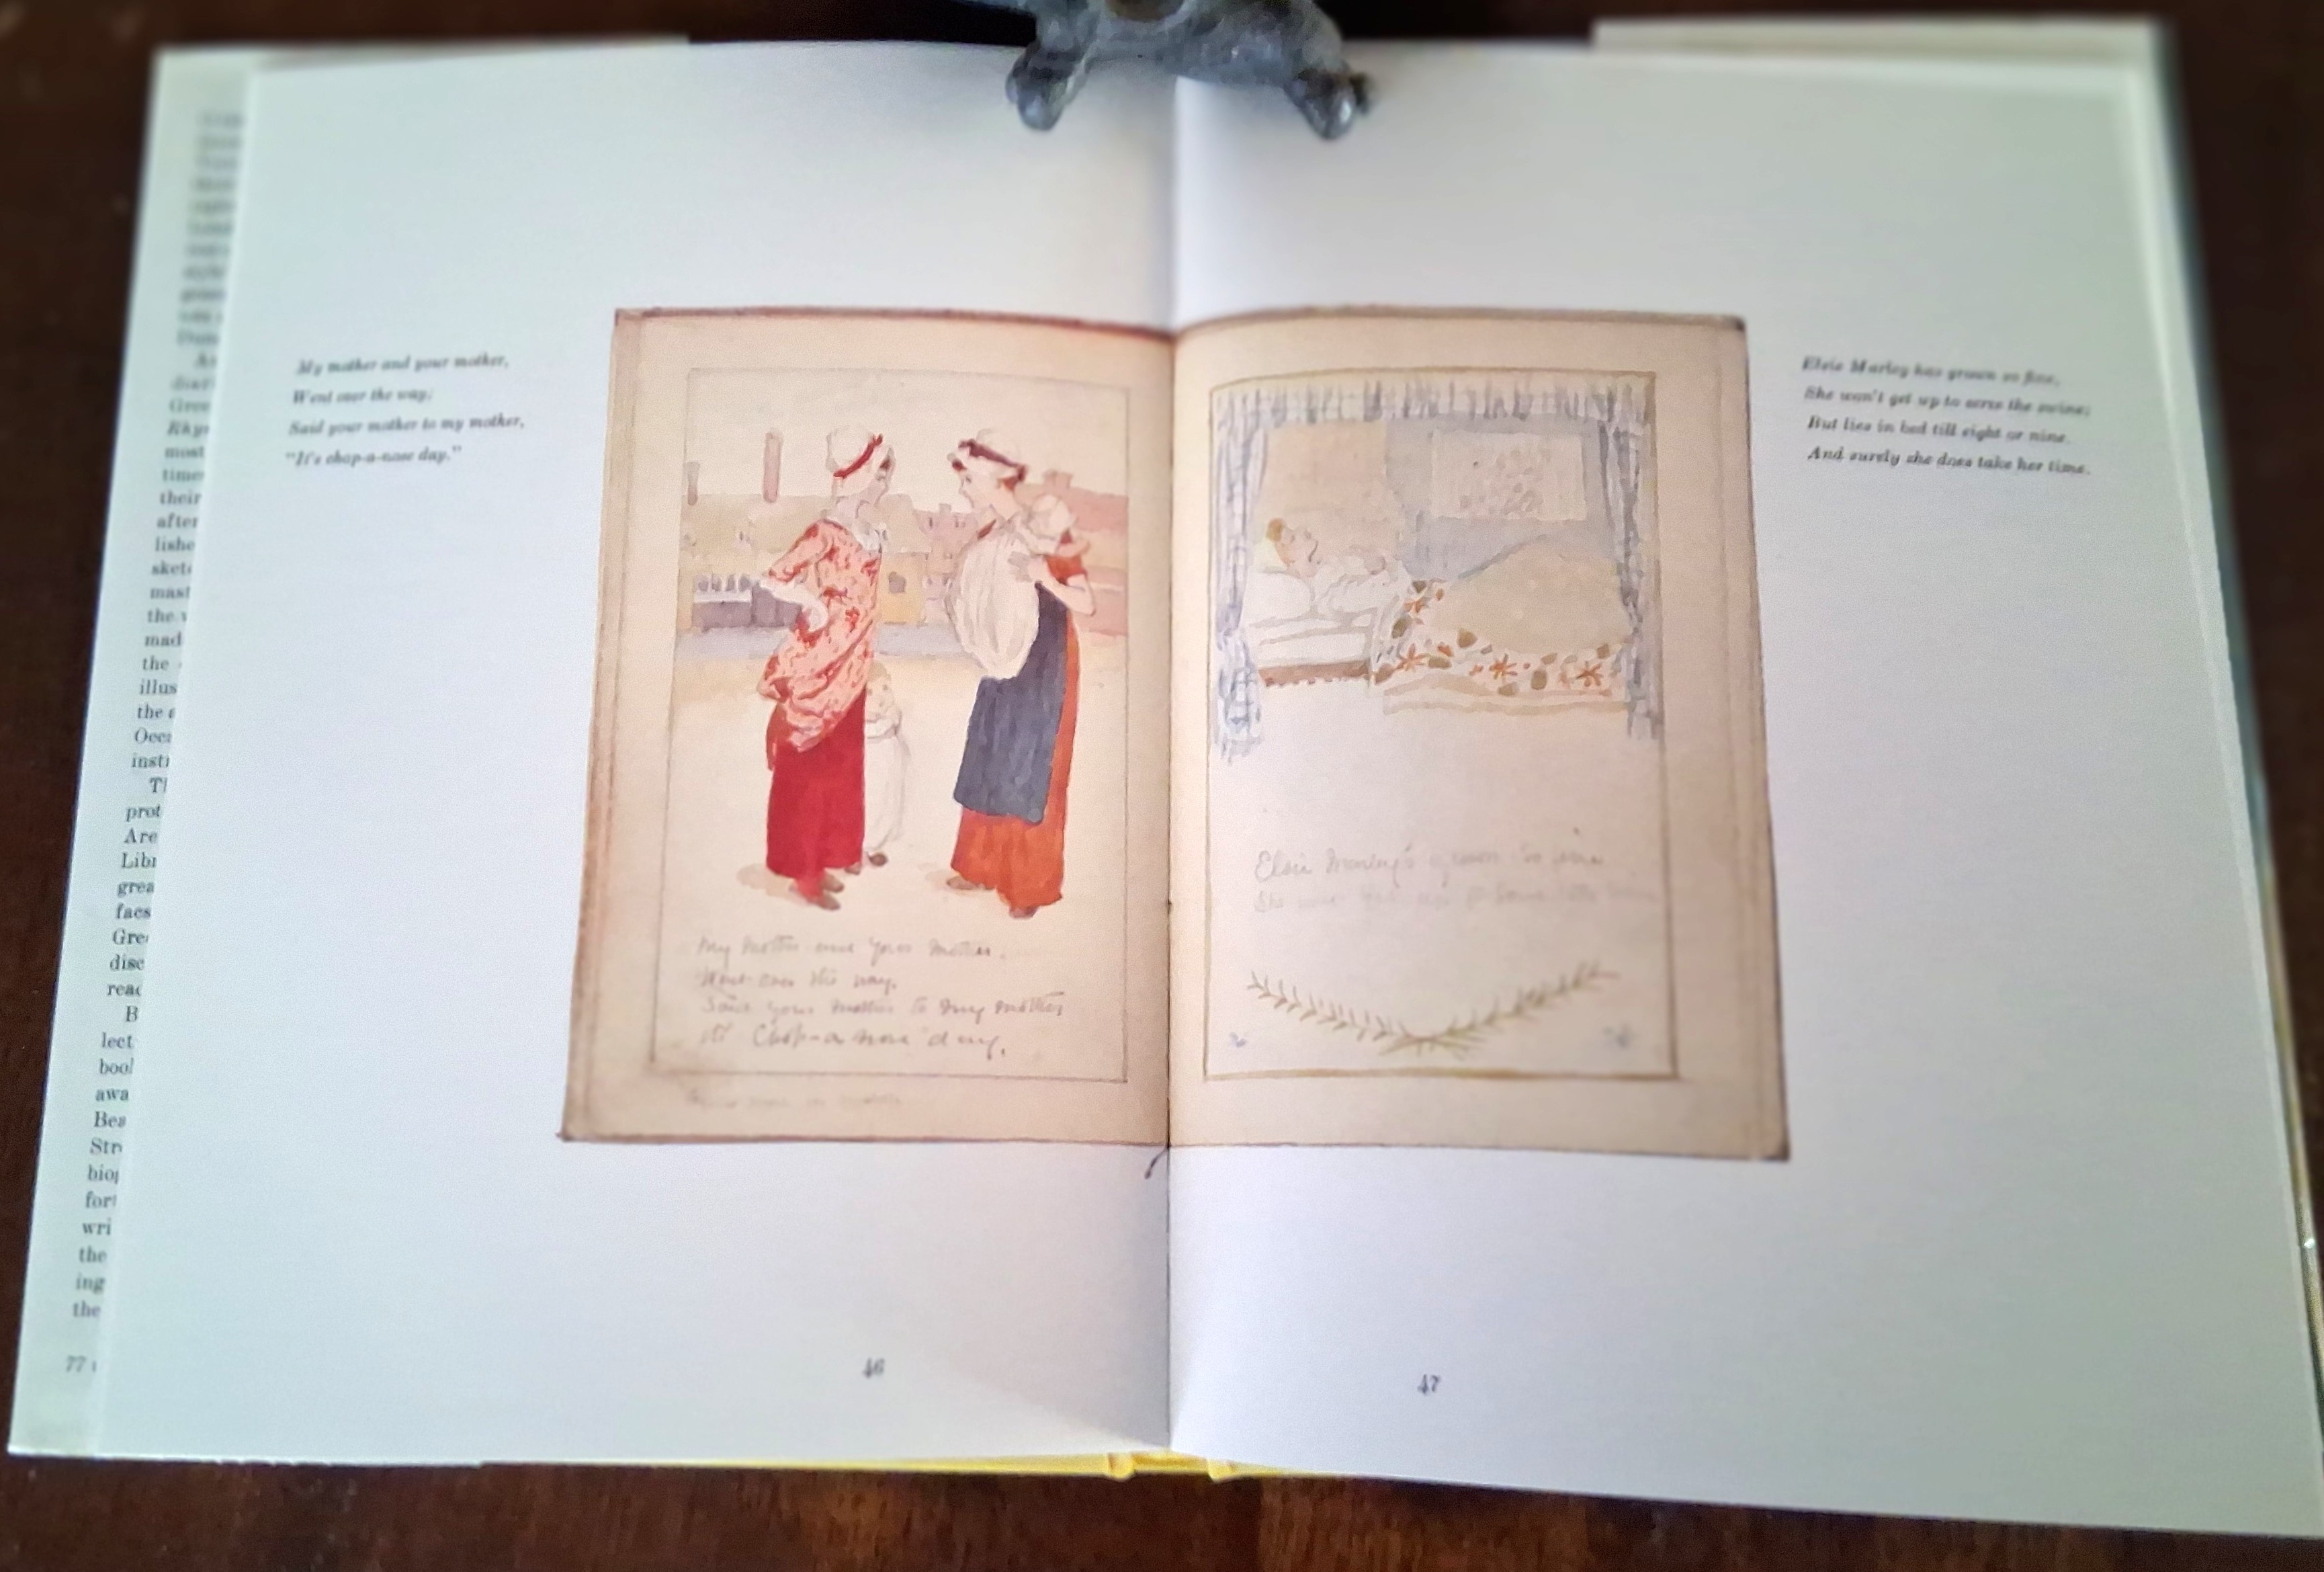 Rhy
most
time
their
after
lishe
sket
mast
the
made
the
illus
the
Occa
insti
prot
Are
Libr
grea
facs
Gre
disc
read
B
lect
book
awa
Bea
Str
biog
fort
wri
the
ing
the
77
My mother and your mother,
Went over the way;
Said your mother to my mother,
"It's chop-a-nose day."
My mother and your mother.
Went over the way.
Said your mother to my mother
its Chop-a-nose day.
46
Elsie Marley's grown so fine
She wont get up to serve the swine
Elsie Marley has grown so fine,
She won't get up to serve the swine;
But lies in bed till eight or nine,
And surely she does take her time.
47